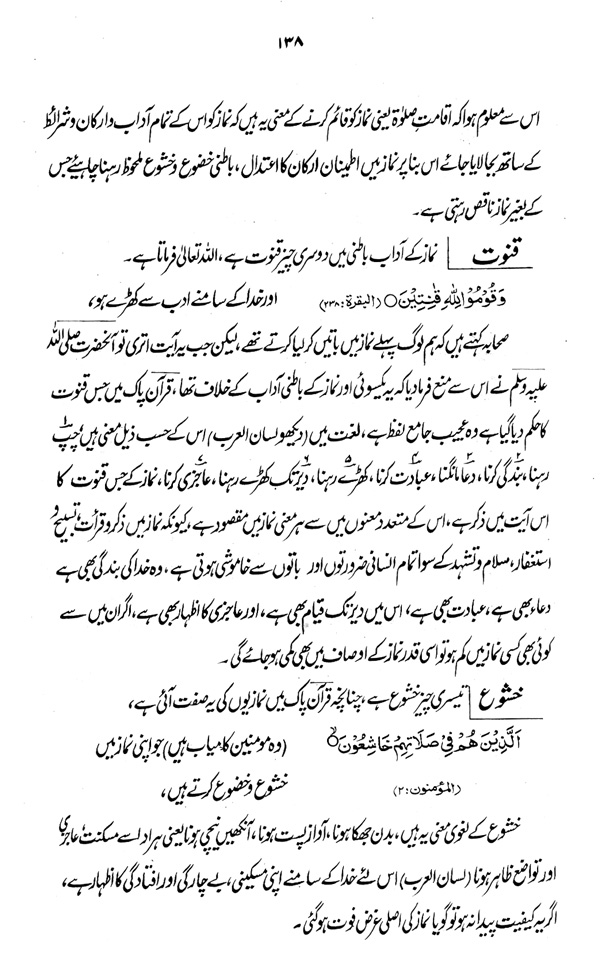 ۱۳۸
اس سے معلوم ہوا کہ اقامتِ صلوٰۃ یعنی نماز کو قائم کرنے کے معنی یہ ہیں کہ نماز کو اس کے تمام آداب و ارکان و شرائط
کے ساتھ بجا لایا جائے اس بنا پر نماز میں اطمینان ارکان کا اعتدال، باطنی خضوع و خشوع ملحوظ رہنا چاہیئے جس
کے بغیر نماز ناقص رہتی ہے۔
قنوت نماز کے آداب باطنی میں دوسری چیز قنوت ہے، اللہ تعالیٰ فرماتا ہے۔
وَقُوْمُوْا لِلّٰهِ قٰنِتِيْنَ○ (البقرۃ: ۲۳۸) اور خدا کے سامنے ادب سے کھڑے ہو،
صحابہ کہتے ہیں کہ ہم لوگ پہلے نماز میں باتیں کر لیا کرتے تھے، لیکن جب یہ آیت اتری تو آنحضرت صلی اللہ
علیہ وسلم نے اس سے منع فرما دیا کہ یہ یکسوئی اور نماز کے باطنی آداب کے خلاف تھا، قرآن پاک میں جس قنوت
کا حکم دیا گیا ہے وہ عجیب جامع لفظ ہے، لغت میں (دیکھو لسان العرب) اس کے حسب ذیل معنی ہیں ۱؎ چپ
رہنا، ۲؎ بندگی کرنا، ۳؎ دعا مانگنا، ۴؎ عبادت کرنا، ۵؎ کھڑے رہنا، ۶؎ دیر تک کھڑے رہنا، ۷؎ عاجزی کرنا، نماز کے جس قنوت کا
اس آیت میں ذکر ہے، اس کے متعدد معنوں میں سے ہر معنی نماز میں مقصود ہے، کیونکہ نماز میں ذکر و قرأت، تسبیح و
استغفار، سلام و تشہد کے سوا تمام انسانی ضرورتوں اور باتوں سے خاموشی ہوتی ہے، وہ خدا کی بندگی بھی ہے
دعاء بھی ہے، عبادت بھی ہے، اس میں دیر تک قیام بھی ہے، اور عاجزی کا اظہار بھی ہے، اگر ان میں سے
کوئی بھی کسی نماز میں کم ہو تو اسی قدر نماز کے اوصاف میں بھی کمی ہو جائے گی۔
خشوع تیسری چیز خشوع ہے، چنانچہ قرآن پاک میں نمازیوں کی یہ صفت آئی ہے،
اَلَّذِيْنَ هُمْ فِيْ صَلَاتِهِمْ خَاشِعُوْنَ○ (وہ مومنین کامیاب ہیں) جو اپنی نماز میں
(المؤمنون: ۲) خشوع و خضوع کرتے ہیں،
خشوع کے لغوی معنی یہ ہیں، بدن جھکا ہونا، آواز پست ہونا، آنکھیں نیچی ہونا یعنی ہر ادا سے مسکنت عاجزی
اور تواضع ظاہر ہونا (لسان العرب) اس لئے خدا کے سامنے اپنی مسکینی، بے چارگی اور افتادگی کا اظہار ہے،
اگر یہ کیفیت پیدا نہ ہو تو گویا نماز کی اصلی غرض فوت ہو گئی۔